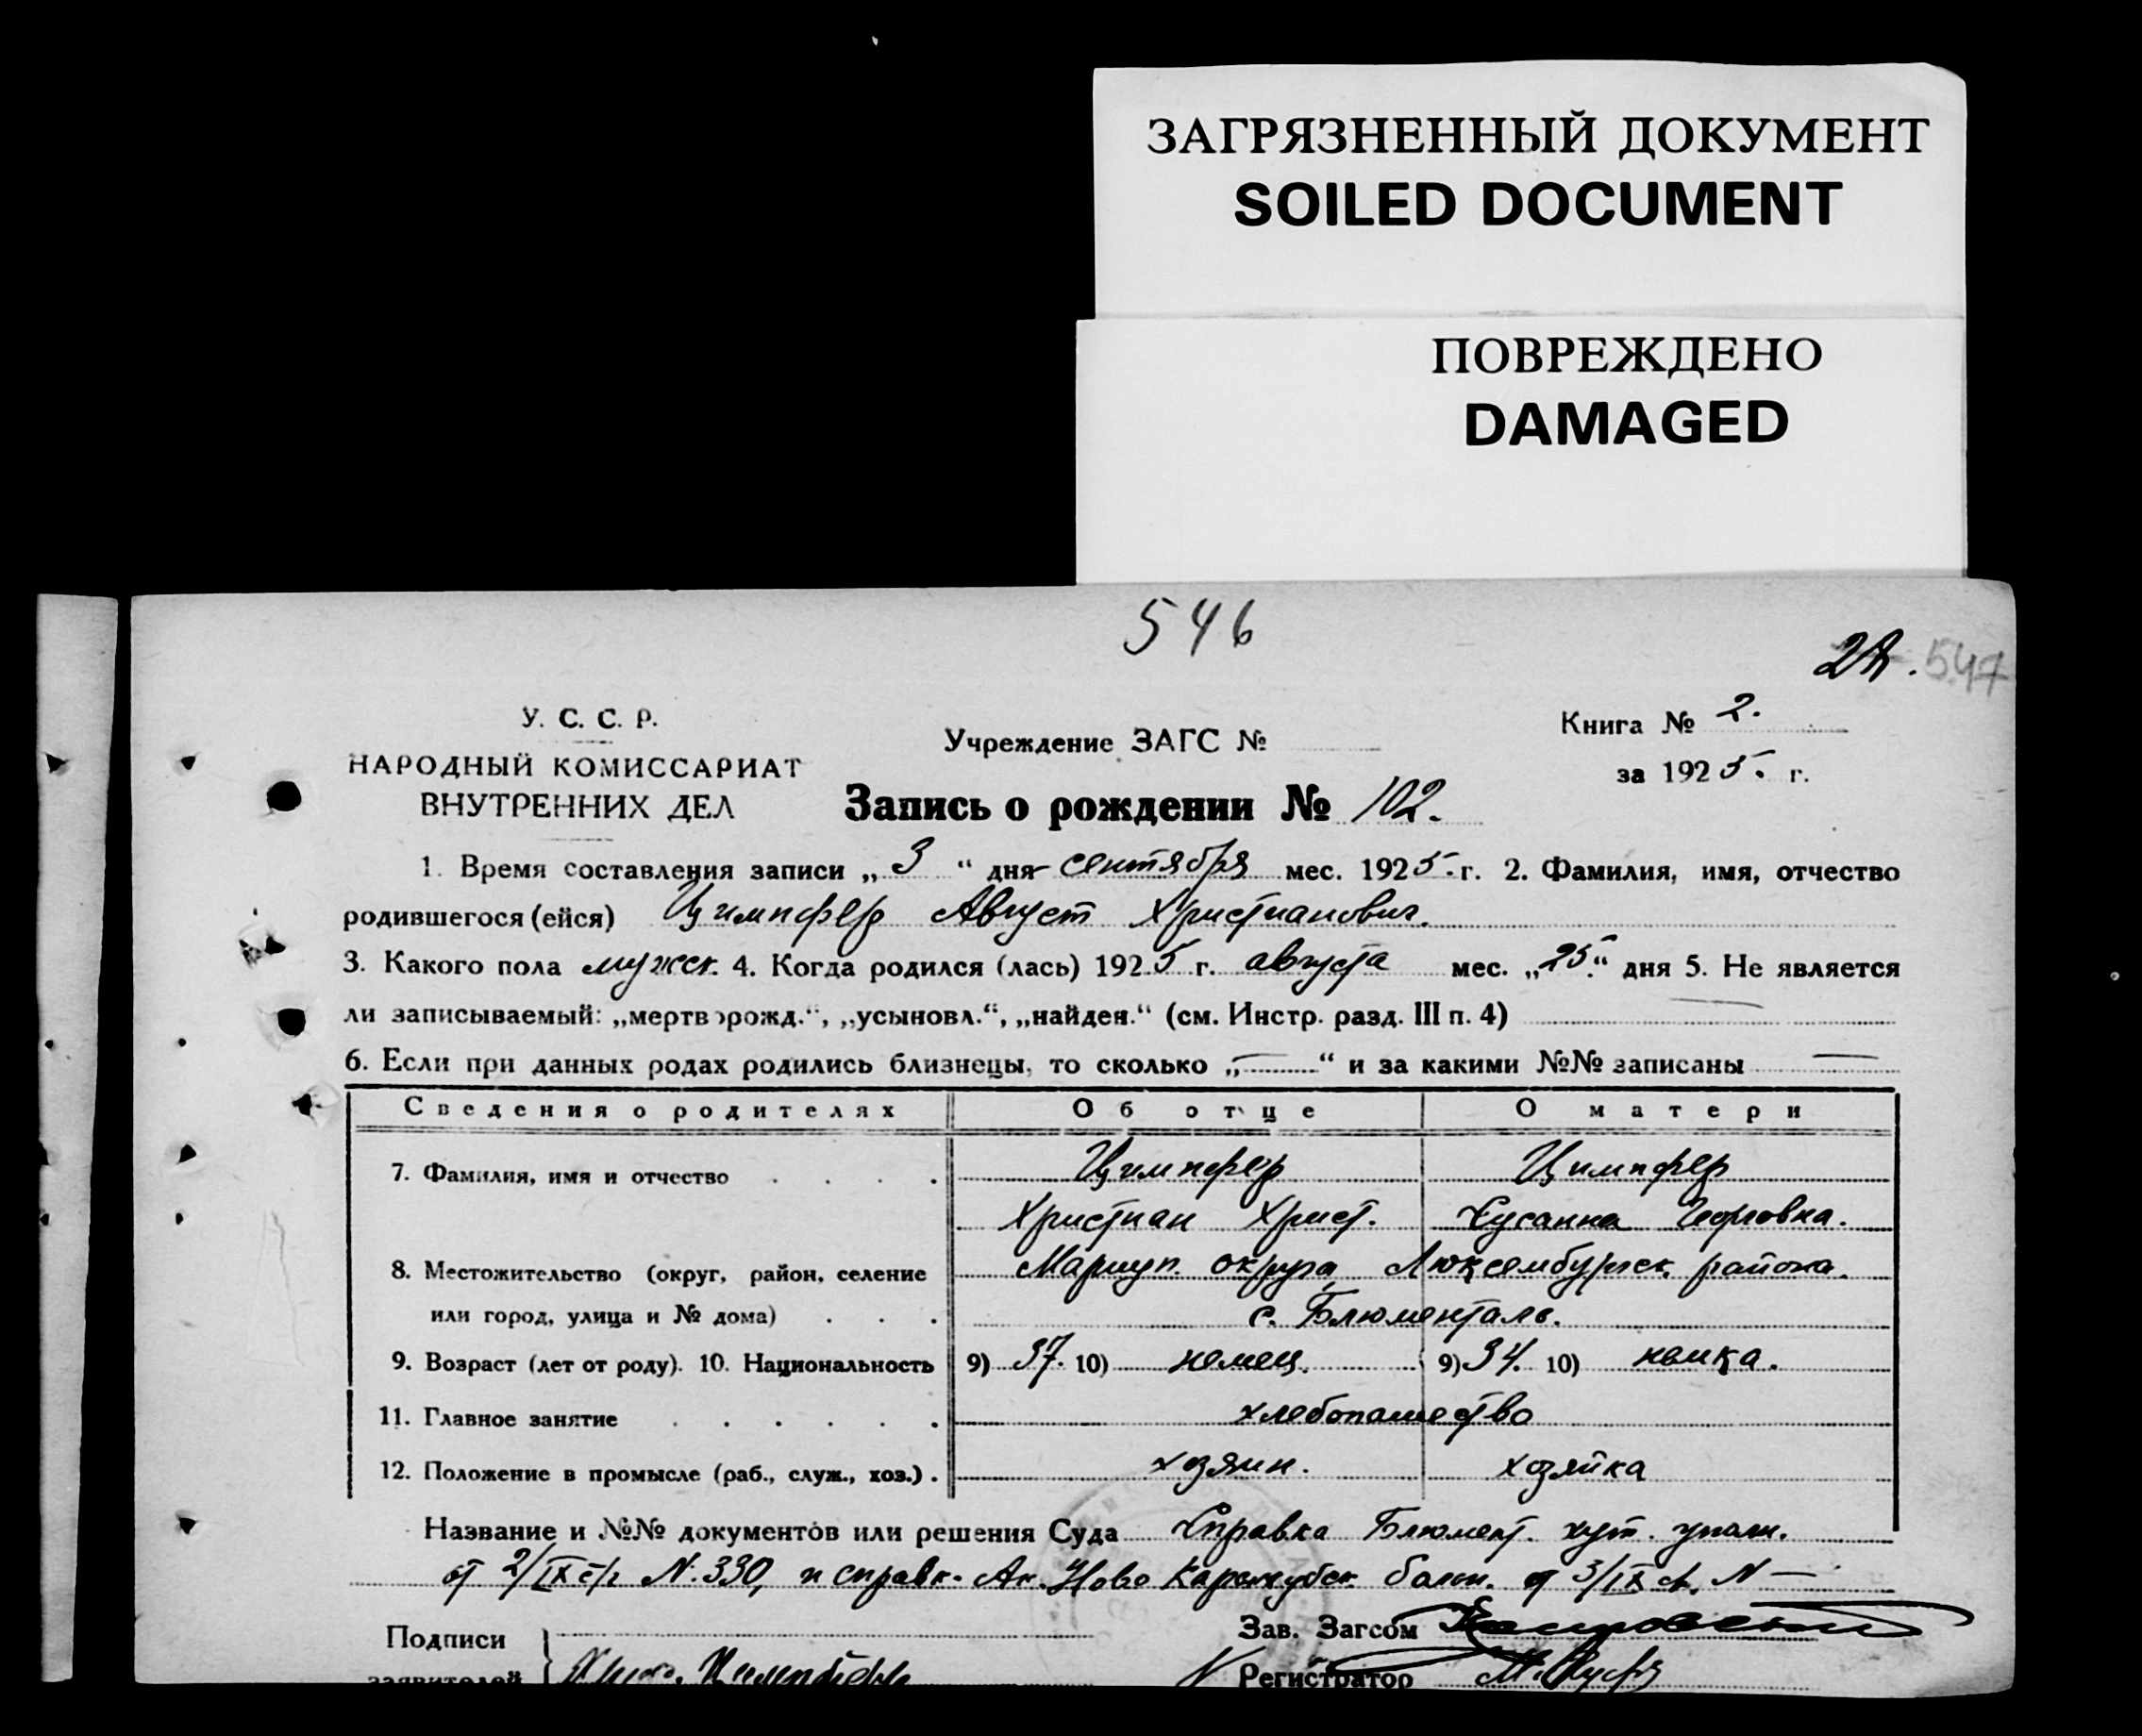 ЗАГРЯЗНЕННЫЙ ДОКУМЕНТ
SOILED DOCUMENT
ПОВРЕЖДЕНО
DAMAGED
546
547
У. С. С. Р.
НАРОДНЫЙ КОМИССАРИАТ
ВНУТРЕННИХ ДЕЛ
Учреждение ЗАГС №
Книга № 2.
за 1925. г.
Запись о рождении № 102.
1. Время составления записи „ 3 “ дня сентября мес. 1925. г. 2. Фамилия, имя, отчество
родившегося (ейся) Цимпфер Август Христианович.
3. Какого пола мужск. 4. Когда родился (лась) 1925 г. августа мес. „25.“ дня 5. Не является
ли записываемый: „мертворожд.“, „усыновл.“, „найден.“ (см. Инстр. разд. III п. 4) —
6. Если при данных родах родились близнецы, то сколько „—“ и за какими №№ записаны —
Сведения о родителях Об отце О матери
7. Фамилия, имя и отчество . . . . Цимпфер Цимпфер
Христиан Христ. Сусанна Георговна.
8. Местожительство (округ, район, селение Мариуп. округа, Люксембургск. района.
или город, улица и № дома) . . . с. Блюменталь.
9. Возраст (лет от роду). 10. Национальность 9) 37. 10) немец. 9) 34. 10) немка.
11. Главное занятие . . . . . . хлебопашество
12. Положение в промысле (раб., служ., хоз.) . хозяин. хозяйка
Название и №№ документов или решения Суда Справка Блюмент. хут. уполн.
от 2/IX с/г N. 330, и справк. Ак. Ново Каракубск. больн. от 3/IX с/г. N —
Подписи
заявителей
Зав. Загсом
Регистратор